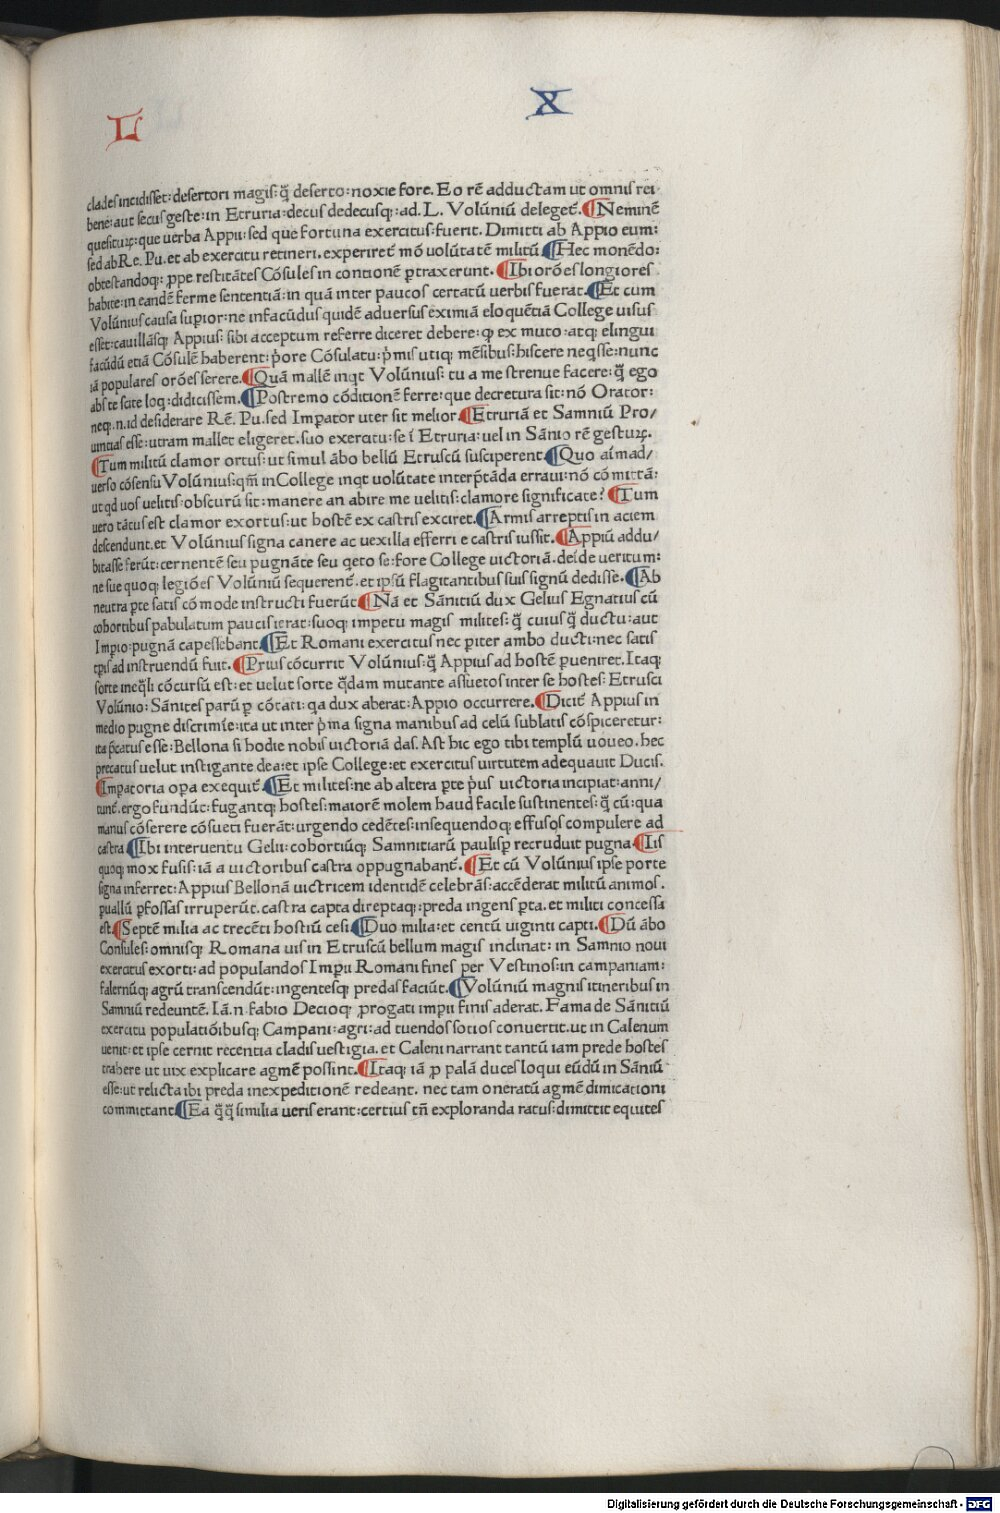 L X
clades incidisset: desertori magis: q̃ deserto: noxie fore. Eo rẽ adductam ut omnis rei
bene: aut secus geste: in Etruria: decus dedecusq; ad. L. Volũniũ deleget᷑. ¶Neminẽ
quesituꝝ: que uerba Appii: sed que fortuna exercitus: fuerit. Dimitti ab Appio eum:
sed ab Re. Pu. et ab exercitu retineri. experiret᷑ mõ uolũtatẽ militũ ¶Hec monẽdo:
obtestandoq; ꝓpe restitãtes Cõsules in contionẽ ꝑtraxerunt. ¶Ibi orões longiores
habite: in eandẽ ferme sententiã: in quã inter paucos certatũ uerbis fuerat. ¶Et cum
Volũnius causa suꝑior: ne infacũdus quidẽ aduersus eximiã eloquẽtiã College uisus
esset: cauillãsq; Appius: sibi acceptum referre diceret debere: ꝙ ex muto: atq; elingui
facũdũ etiã Cõsulẽ haberent: p̃ore Cõsulatu: p̃mis utiq; mẽsibus: hiscere neqsse: nunc
iã populares orões serere. ¶Quã mallẽ inqt Volũnius: tu a me strenue facere: q̃ ego
abs te scite loq: didicissem. ¶Postremo cõditionẽ ferre: que decretura sit: nõ Orator:
neq;.n. id desiderare Rẽ. Pu. sed Imꝑator uter sit melior. ¶Etruriã et Samniũ Pro/
uincias esse: utram mallet eligeret. suo exercitu: se ĩ Etruria: uel in Sãnio rẽ gestuꝝ.
¶Tum militũ clamor ortus: ut simul ãbo bellũ Etruscũ susciperent ¶Quo aĩmad/
uerso cõsensu Volũnius: qm̃ in College inqt uolũtate interp̃tãda erraui: nõ cõmittã:
ut qd uos uelitis: obscurũ sit: manere an abire me uelitis: clamore significate? ¶Tum
uero tãtus est clamor exortus: ut hostẽ ex castris exciret. ¶Armis arreptis in aciem
descendunt. et Volũnius signa canere ac uexilla efferri e castris iussit. ¶Appiũ addu/
bitasse ferũt: cernentẽ seu pugnãte seu qeto se: fore College uictoriã. deĩde ueritum:
ne sue quoq; legiões Volũniũ sequerent᷑. et ipsũ flagitantibus suis signũ dedisse. ¶Ab
neutra ꝑte satis cõmode instructi fuerũt ¶Nã et Sãnitiũ dux Gelius Egnatius cũ
cohortibus pabulatum paucis ierat: suoq; impetu magis milites: q̃ cuiusq̃ ductu: aut
Imꝑio: pugnã capessebant ¶Et Romani exercitus nec ꝑiter ambo ducti: nec satis
tꝑis ad instruendũ fuit. ¶Prius cõcurrit Volũnius: q̃ Appius ad hostẽ ꝑueniret. Itaq;
forte ineq̃li cõcursũ est: et uelut sorte q̃dam mutante assuetos inter se hostes: Etrusci
Volũnio: Sãnites parũꝑ cõtati: qa dux aberat: Appio occurrere. ¶Dicit᷑ Appius in
medio pugne discrimĩe: ita ut inter p̃ma signa manibus ad celũ sublatis cõspiceretur:
ita p̃catus esse: Bellona si hodie nobis uictoriã das. Ast hic ego tibi templũ uoueo. hec
precatus uelut instigante dea: et ipse College: et exercitus uirtutem adequauit Ducis.
¶Imꝑatoria oꝑa exequit᷑ ¶Et milites: ne ab altera ꝑte p̃us uictoria incipiat: anni/
tunt᷑. ergo fundũt: fugantq; hostes: maiorẽ molem haud facile sustinentes: q̃ cũ: qua
manus cõserere cõsueti fuerãt: urgendo cedẽtes: insequendoq; effusos compulere ad
castra ¶Ibi interuentu Gelii: cohortiũq; Samnitiarũ paulisꝑ recruduit pugna ¶Iis
quoq; mox fusis: iã a uictoribus castra oppugnabant᷑. ¶Et cũ Volũnius ipse porte
signa inferret: Appius Bellonã uictricem identidẽ celebrãs: accẽderat militũ animos.
ꝑuallũ ꝑfossas irruperũt. castra capta direptaq;: preda ingens ꝑta. et militi concessa
est. ¶Septẽ milia ac trecẽti hostiũ cesi ¶Duo milia: et centũ uiginti capti. ¶Dũ ãbo
Consules: omnisq; Romana uis in Etruscũ bellum magis inclinat: in Samnio noui
exercitus exorti: ad populandos Imꝑii Romani fines per Vestinos: in campaniam:
falernũq; agrũ transcendũt: ingentesq; predas faciũt. ¶Volũniũ magnis itineribus in
Samniũ redeuntẽ. Iã.n. fabio Decioq; ꝓrogati impii finis aderat. Fama de Sãnitiũ
exercitu populatiõibusq; Campani: agri: ad tuendos sotios conuertit. ut in Calenum
uenit: et ipse cernit recentia cladis uestigia. et Caleni narrant tantũ iam prede hostes
trahere ut uix explicare agmẽ possint. ¶Itaq; iã ꝓ palã duces loqui eũdũ in Sãniũ
esse: ut relicta ibi preda in expeditionẽ redeant. nec tam oneratũ agmẽ dimicationi
committant ¶Ea q̃q̃ similia ueris erant: certius tñ exploranda ratus: dimittit equites
Digitalisierung gefördert durch die Deutsche Forschungsgemeinschaft - DFG